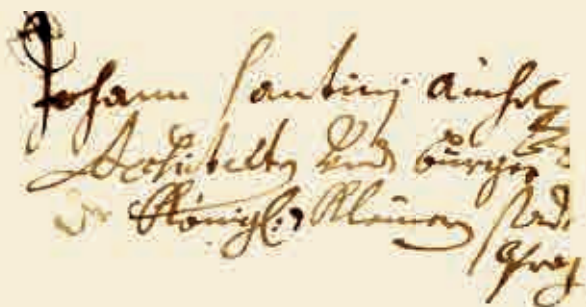 Johann Santinj Aichel
Architectus Vnd Bürger
der Königl: Kleinen Stadt
Prag